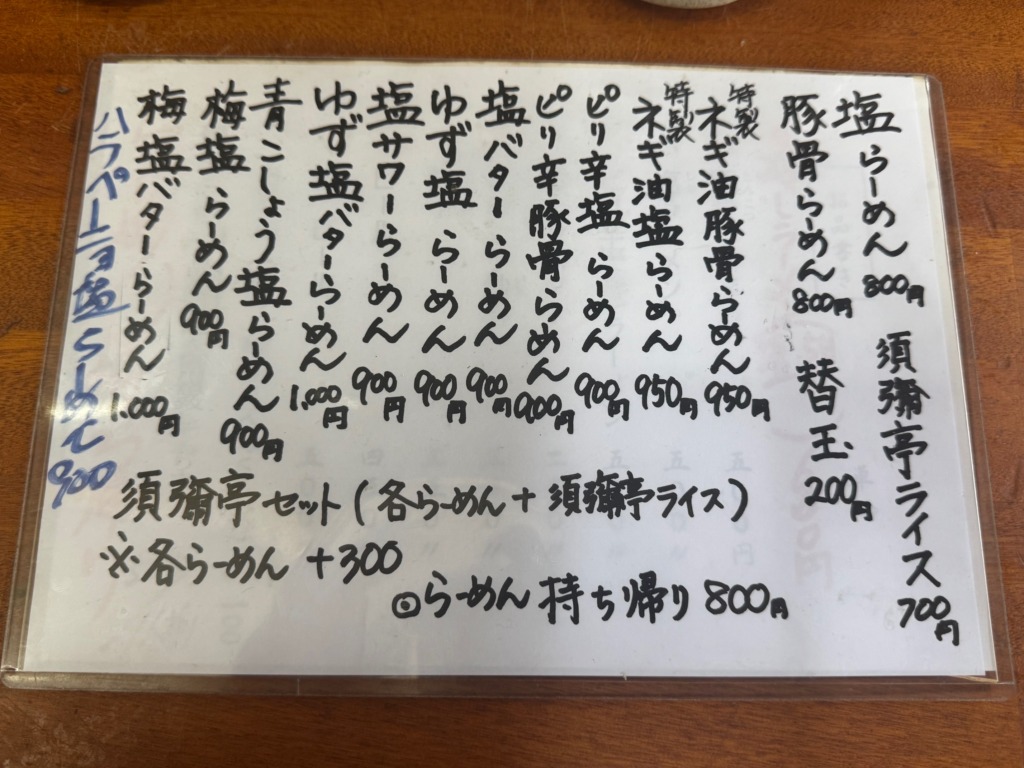 塩らーめん 800円
須彌亭ライス 700円
豚骨らーめん 800円
替玉 200円
特製ネギ油豚骨らーめん 950円
特製ネギ油塩らーめん 950円
ピリ辛塩らーめん 900円
ピリ辛豚骨らーめん 900円
塩バターらーめん 900円
ゆず塩らーめん 900円
塩サワーらーめん 900円
ゆず塩バターらーめん 1,000円
青こしょう塩らーめん 900円
梅塩らーめん 900円
梅塩バターらーめん 1,000円
ハラペーニョ塩らーめん 900
須彌亭セット(各らーめん+須彌亭ライス)
※各らーめん +300
◎らーめん 持ち帰り 800円